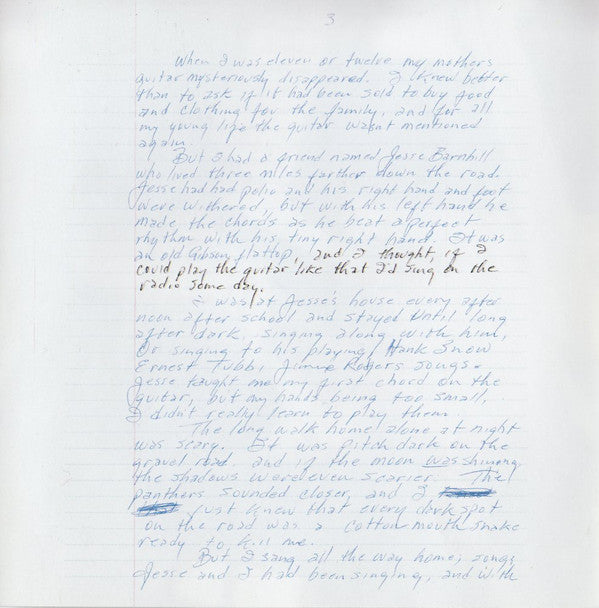 3
When I was eleven or twelve my mothers
guitar mysteriously disappeared. I knew better
than to ask if it had been sold to buy food
and clothing for the family, and for all
my young life the guitar wasnt mentioned
again.
But I had a friend named Jesse Barnhill
who lived three miles farther down the road.
Jesse had had polio and his right hand and foot
were withered, but with his left hand he
made the chords as he beat a perfect
rhythm with his tiny right hand. It was
an old Gibson flattop, and I thought, if I
could play the guitar like that I'd sing on the
radio some day.
I was at Jesse's house every after
noon after school and stayed until long
after dark, singing along with him,
Or singing to his playing Hank Snow
Ernest Tubb, Jimmie Rogers songs.
Jesse taught me my first chord on the
guitar, but my hands being too small,
I didn't really learn to play them.
The long walk home alone at night
was scary. It was pitch dark on the
gravel road. and if the moon was shining
the shadows were even scarier. The
panthers sounded closer, and I
just knew that every dark spot
on the road was a cotton mouth snake
ready to kill me.
But I sang all the way home, songs
Jesse and I had been singing, and with